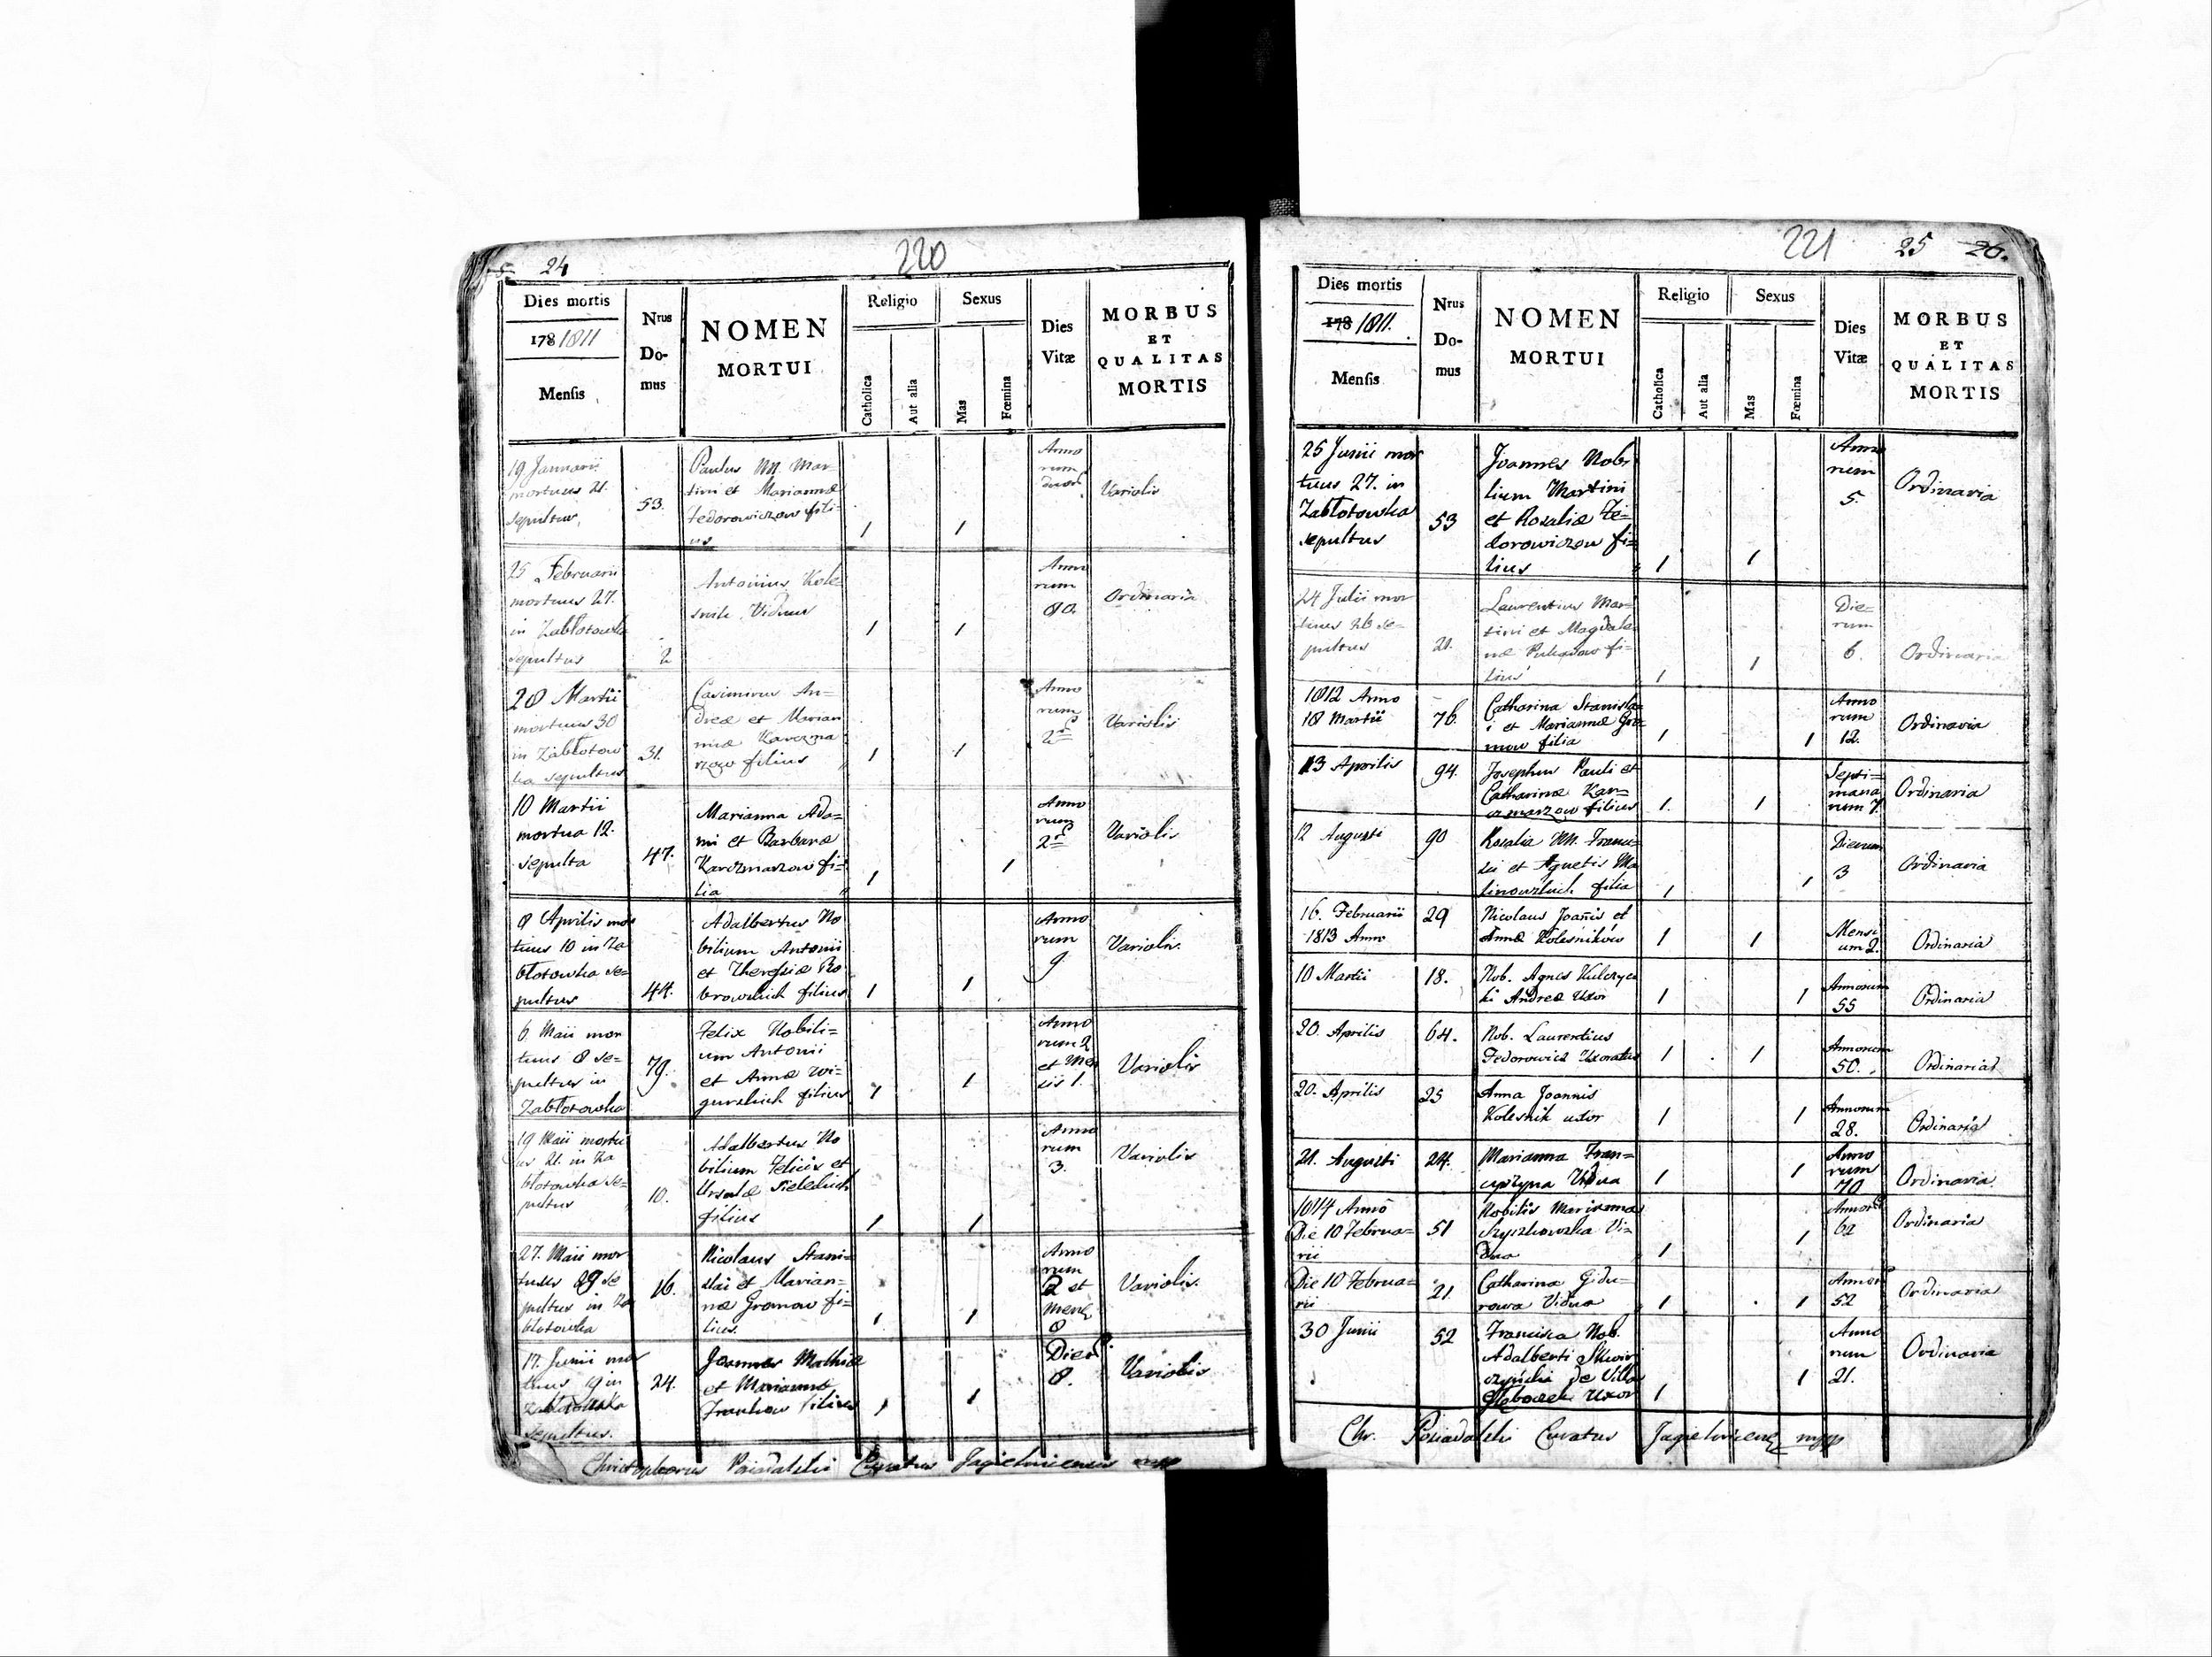 24
220
Dies mortis
178 1811
Mensis
Nrus
Do-
mus
NOMEN
MORTUI
Religio
Catholica
Aut alia
Sexus
Mas
Fœmina
Dies
Vitæ
MORBUS
ET
QUALITAS
MORTIS
19 Januarii
mortuus 21.
sepultus,
53.
Paulus NN. Mar-
tini et Mariannæ
Fedorowiczow fili-
us
1
1
Anno
rum
duor
Variolis
25 Februarii
mortuus 27.
in Zabłotowka
sepultus
2
Antonius Kole
snik Viduus
1
1
Anno
rum
80.
Ordinaria
28 Martii
mortuus 30
in Zabłotow
ka sepultus
31.
Casimirus An-
dreæ et Marian
næ Karczma
rzow filius
1
1
Anno
rum
2
Variolis
10 Martii
mortua 12.
sepulta
47.
Marianna Ada-
mi et Barbaræ
Karczmarzow fi-
lia
1
1
Anno
rum
2
Variolis
8 Aprilis mor
tuus 10 in Za
błotowka se-
pultus
44.
Adalbertus No
bilium Antonii
et Theresiæ
filius
1
1
Anno
rum
9
Variolis
6 Maii mor
tuus 8 se-
pultus in
Zabłotowka
79.
Felix Nobili-
um Antonii
et Annæ
filius
1
1
Anno
rum 2
et Men
sis 1.
Variolis
19 Maii mortu
us 21. in Za
błotowka se-
pultus
10.
Adalbertus No
bilium Felicis et
Ursulæ Sieleckich
filius
1
1
Anno
rum
3.
Variolis
27. Maii mor
tuus 29 se
pultus in Za
błotowka
16.
Nicolaus Stani-
slai et Marian-
næ Gromow fi-
lius.
1
1
Anno
rum
2 et
Mens
8
Variolis
17. Junii mor
tuus 19 in
Zabłotowka
sepultus.
24.
Joannes Mathiæ
et Mariannæ
Frankow filius
1
1
Dier
8.
Variolis
Christophorus Posiadalski Curatus Jagielnicensis mpp
221
25 26.
Dies mortis
178 1811.
Mensis
Nrus
Do-
mus
NOMEN
MORTUI
Religio
Catholica
Aut alia
Sexus
Mas
Fœmina
Dies
Vitæ
MORBUS
ET
QUALITAS
MORTIS
25 Junii mor
tuus 27. in
Zabłotowka
sepultus
53
Joannes Nobi
lium Martini
et Rosaliæ Fe-
dorowiczow fi-
lius
1
1
Anno
rum
5.
Ordinaria
24 Julii mor
tuus 26 se-
pultus
21.
Laurentius Mar-
tini et Magdale-
næ fi-
lius
1
1
Die-
rum
6.
Ordinaria
1812 Anno
18 Martii
76.
Catharina Stanisla-
i et Mariannæ Gro-
mow filia
1
1
Anno
rum
12.
Ordinaria
13 Aprilis
94.
Josephus Pauli et
Catharinæ Kar-
czmarzow filius
1.
1
Septi-
mana
rum 7.
Ordinaria
12 Augusti
90
Rosalia NN. Franci-
sci et Agnetis Ma
linowskich filia
1
1
Dierum
3
Ordinaria
16. Februarii
1813 Anno
29
Nicolaus Joañis et
Annæ Kolesników
1
1
Mensi
um 2.
Ordinaria
10 Martii
18.
Nob. Agnes Kulczyc
ki Andreæ Uxor
1
1
Annorum
55
Ordinaria
20. Aprilis
64.
Nob. Laurentius
Fedorowicz Uxoratus
1
1
Annorum
50.
Ordinaria
20. Aprilis
25
Anna Joannis
Kolesnik uxor
1
1
Annorum
28.
Ordinaria
21. Augusti
24.
Marianna Fran-
Vidua
1
1
Anno
rum
70
Ordinaria.
1814 Anno
Die 10 Februa-
rii
51
Nobilis Marianna
Szyszkowska Vi-
dua
1
1
Annor
62
Ordinaria
Die 10 Februa-
rii
21
Catharina Gidu-
rowa Vidua
1
1
Annor
52
Ordinaria
30 Junii
52
Francisca Nob.
Adalberti Skwir
czyński de Villa
Głeboczek Uxor
1
1
Anno
rum
21.
Ordinaria
Chr. Posiadalski Curatus Jagielnicens mpp